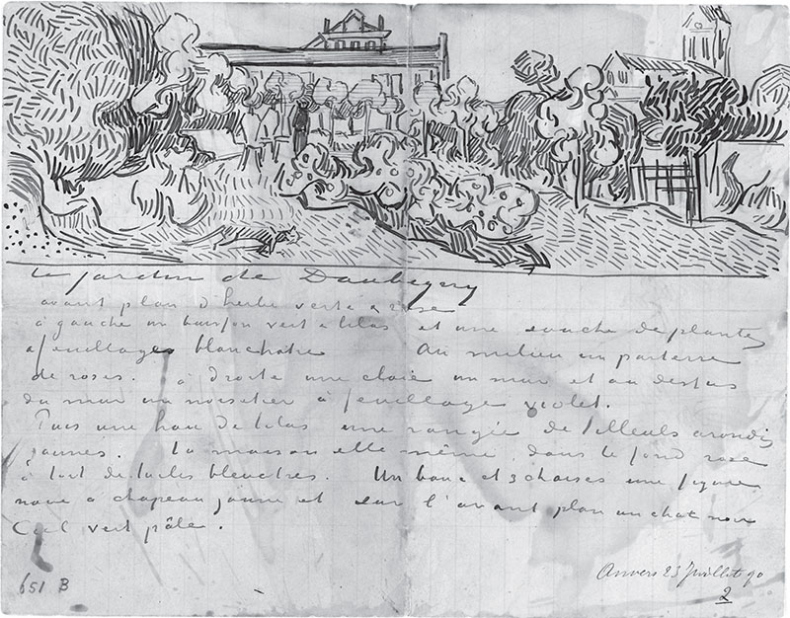 Le jardin de Daubigny
avant plan d'herbe verte & rose
à gauche un buisson vert & lilas et une souche de plantes
à feuillages blanchatre   Au milieu un parterre
de roses. à droite une claie un mur et au dessus
du mur un noisetier à feuillage violet.
Puis une haie de lilas une rangée de tilleuls arondis
jaunes. La maison elle même dans le fond rose
à toit de tuiles bleuatres. Un banc et 3 chaises une figure
noire à chapeau jaune et sur l'avant plan un chat noir
Ciel vert pâle.
651 B
Auvers 23 Juillet 90
2